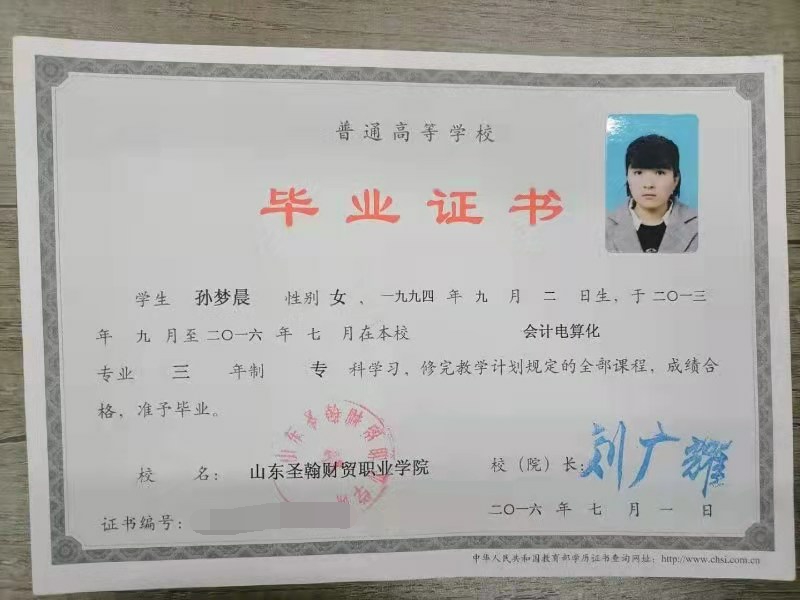 普通高等学校
毕业证书
学生 孙梦晨 性别 女 、一九九四 年 九 月 二 日生，于 二〇一三
年 九 月至 二〇一六 年 七 月在本校 会计电算化
专业 三 年制 专 科学习，修完教学计划规定的全部课程，成绩合
格，准予毕业。
校 名： 山东圣翰财贸职业学院
校（院）长： 刘广耀
证书编号：
二〇一六 年 七 月 一 日
中华人民共和国教育部学历证书查询网址：http://www.chsi.com.cn